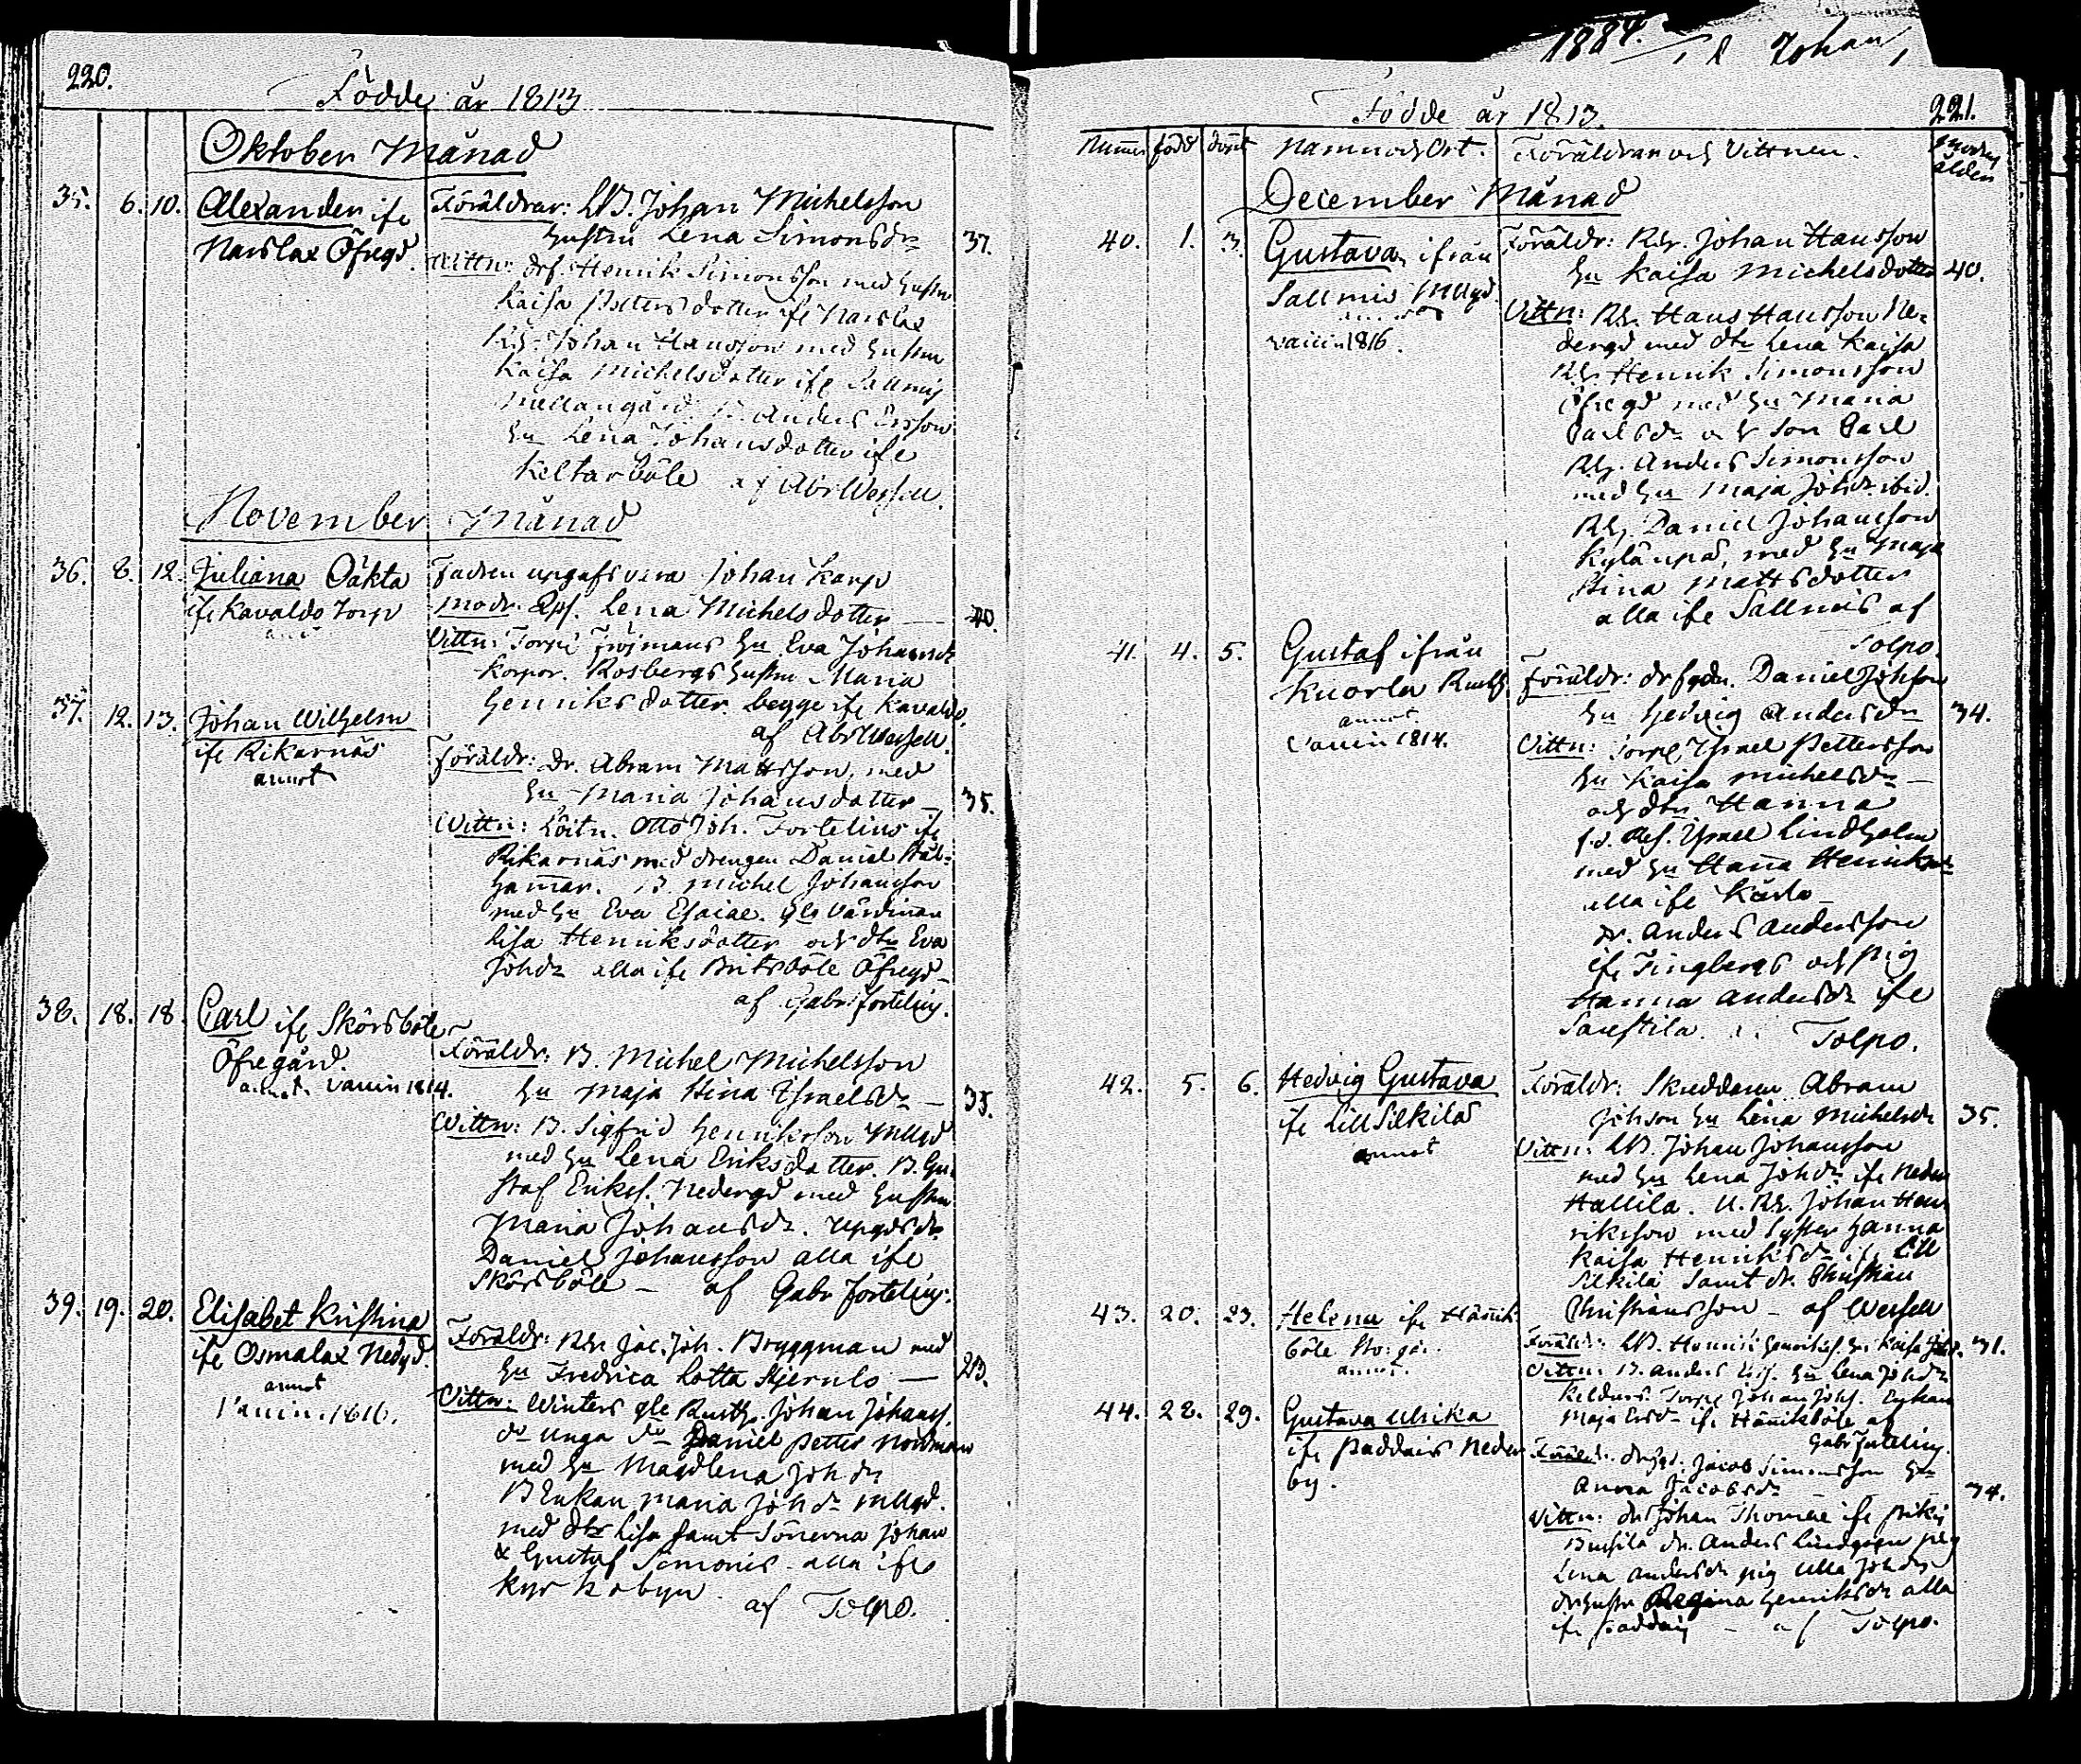 220.
Födde år 1813
Oktober Månad
35. 6. 10. Alexander ifr Föräldrar: LB. Johan Michelsson
Narslax Öfregd. hustru Lena Simonsdr 37.
Vittn: drf. Henrik Simonsson med hustru
Kaisa Pettersdotter ifr Narslax
Johan Hansson med hustru
Kaisa Michelsdotter ifr Sallmis
Mellangård. Anders Ersson
hu Lena Johansdotter ifr
Keltarböle af Abr Wessell.
November Månad
36. 8. 12. Juliana Oäkta Fadren upgafs vara Johan Karp
ifr Kavaldo Torp modr. Lena Michelsdotter — 40.
Vittn: Torp. Fröjmans hu Eva Johansdr
Korpor. Rosbergs hustru Maria
Henriksdotter begge ifr Kavaldo.
af Abr Wessell.
37. 12. 13. Johan Wilhelm
ifr Rikarnäs
annot
Föräldr: Dr. Abram Mattsson, med
hu Maria Johansdotter — 35.
Vittn: Löitn. Otto Joh. Fortelius ifr
Rikarnäs med drengen Daniel Stål-
hamar. B. Michel Johansson
med hu Eva Esaiae. Gla Värdinnan
Lisa Henriksdotter och dtr Eva
Johdr alla ifr Britsböle Öfregd —
af Gabr: Forteliuj.
38. 18. 18. Carl ifr Skörsböle
Öfregård.
annot. Vaccin 1814.
Föräldr: B. Michel Michelsson
hu Maja Stina Israelsdr — 35.
Vittn: B. Sigfrid Henriksson Mllgd
med hu Lena Eriksdotter. B. Gu-
staf Erikss. Nedergd med hustru
Maria Johansdr.
Daniel Johansson alla ifr
Skörsböle — af Gabr Forteliuj.
39. 19. 20. Elisabet Kristina
ifr Osmalax Nedgd.
annot
Vaccin. 1816.
Föräldr: Rr Jac. Joh. Bryggman med
hu Fredrica Lotta Stjernlo —
Vittn: Winters gle Rusth. Johan Johanss.
do unga do Daniel Petter Nordman
med hu Magdlena Joh dr
BEnkan Maria Joh dr Mllgd.
med dtr Lisa samt Sönerna Johan
& Gustaf Simonis — alla ifr
Kyrkobyn. af Tolpo.
1884.
Johan
221.
Födde år 1813.
Nummer född döpt Namn och Ort. Föräldrar och Vittnen. Modrens ålder
December Månad
40. 1. 3. Gustava ifrån Föräldr: Rr. Johan Hansson
Sallmis Mllgd. hu Kaisa Michelsdotter 40.
vaccin 1816.
Vittn: Rr. Hans Hansson Ne-
dergd med dtr Lena Kaisa
Rr Henrik Simonsson
Öfregd med hu Maria
Carlsdr och Son Carl
Rr. Anders Simonsson
med hu Maja Johdr. ibid.
Rr. Daniel Johansson
Kylänpää, med hu Maja
Stina Mattsdotter
alla ifr Sallmis af
Tolpo.
41. 4. 5. Gustaf ifrån
Knorla Rusth
annot.
Vaccin 1814.
Föräldr: drfgdn. Daniel Johsson
hu Hedvig Andersdr 34.
Vittn: Torp. Israel Pettersson
hu Kaisa Michelsdr —
och dtr Hanna
f.d. Ref. Israel Lindholm
med hu Hanna Henriksdr
alla ifr Kärla —
dr. Anders Andersson
ifr Tingbergs och Pig
Hanna Andersdr ifr
Tolpo.
42. 5. 6. Hedvig Gustava
ifr Lill Silkilä
annot
Föräldr: Skreddaren Abram
Johsson hu Lena Michelsdr 35.
Vittn: LB. Johan Johansson
med hu Lena Johdr ifr Neder
Hallila. U. Rr. Johan Hen-
riksson med Syster Hanna
Kaisa Henriksdr ifr Lill
Silkilä Samt dr. Christian
Christiansson — af Wessell
43. 20. 23. Helena ifr Hännik-
böle
annot.
Föräldr: LB. Henrik Henrikss. hu Kaisa Johdr. 31.
Vittn: B. Anders hu Lena Johdr
Torp. Johan Johs.
Maja Ersdr ifr Hännikböle af
Gabr Forteliuj.
44. 28. 29. Gustava Ulrika
ifr Paddais Neder
by.
Föräldr: Jacob Simonsson hu
Anna Jacobsdr — 34.
Vittn: dr Johan Thomae ifr
dr. Anders Lindgren pig
Lena Andersdr pig Ulla Johdr
Regina Henriksdr alla
ifr Paddaij — af Tolpo.